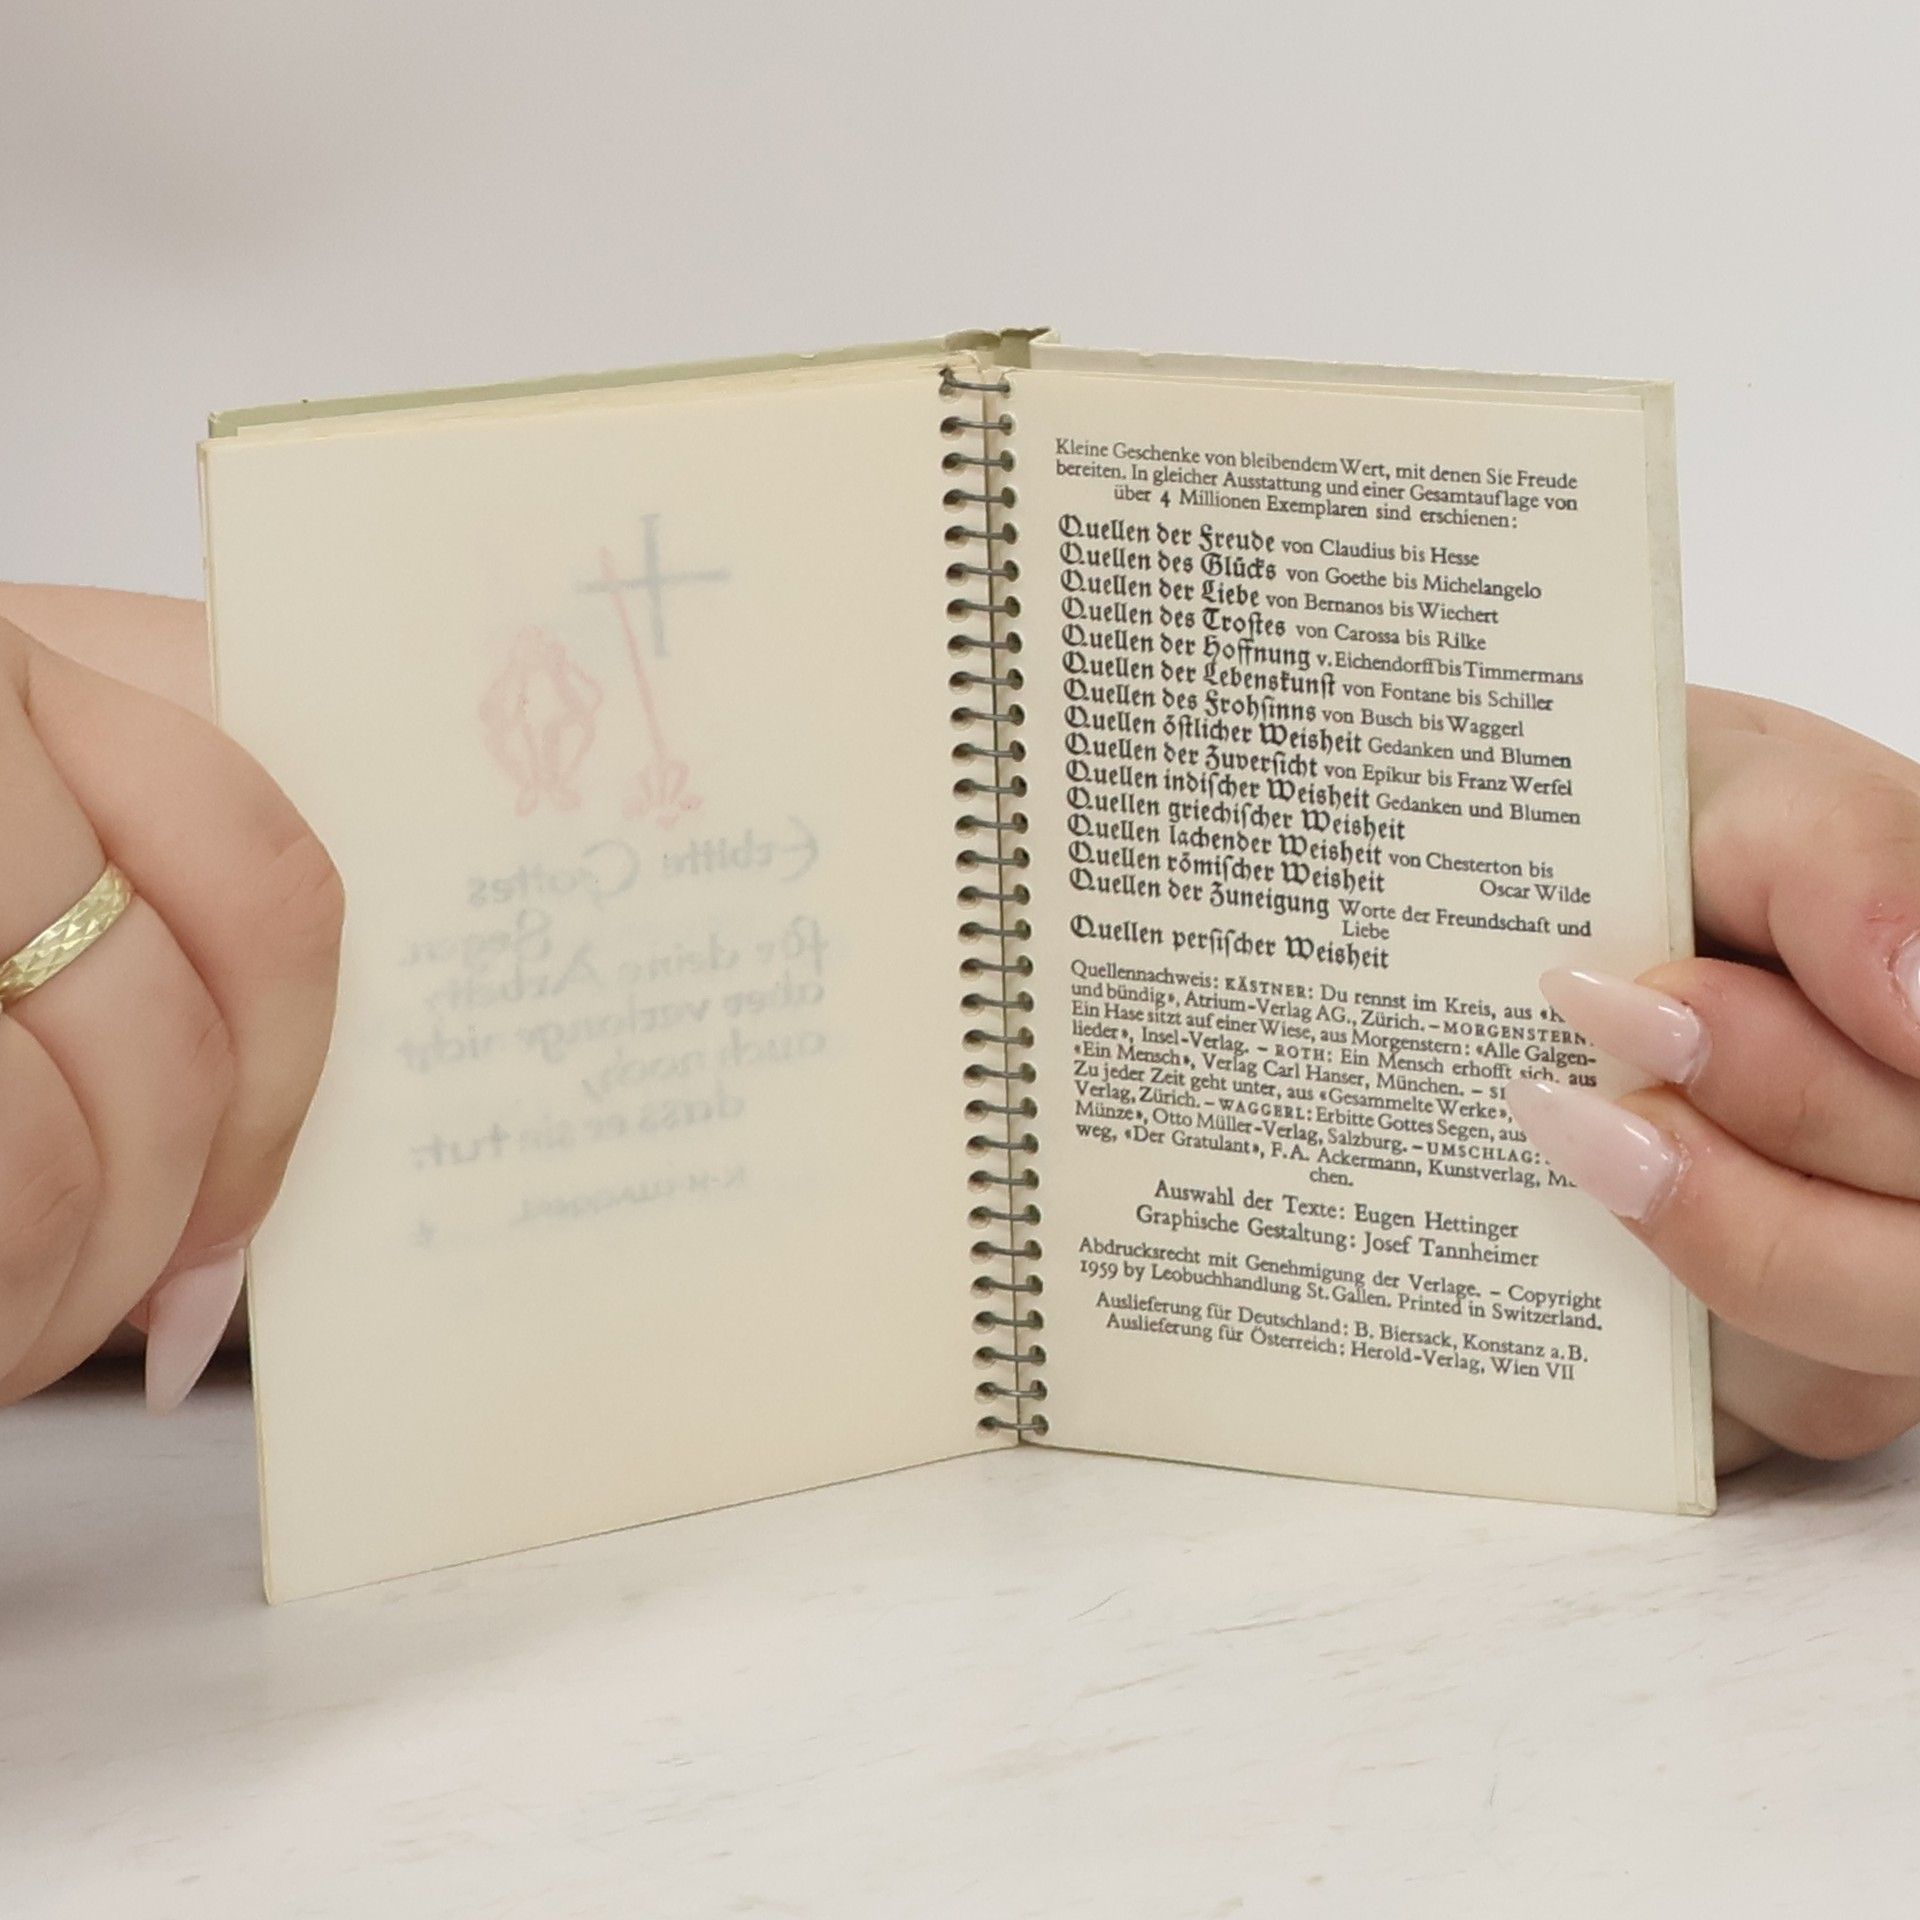 Erbitte Gottes
Segen
für deine Arbeit,
aber verlange nicht
auch noch,
dass er sie tut.
K·H·WAGGERL
Kleine Geschenke von bleibendem Wert, mit denen Sie Freude
bereiten. In gleicher Ausstattung und einer Gesamtauflage von
über 4 Millionen Exemplaren sind erschienen:
Quellen der Freude von Claudius bis Hesse
Quellen des Glücks von Goethe bis Michelangelo
Quellen der Liebe von Bernanos bis Wiechert
Quellen des Troſtes von Carossa bis Rilke
Quellen der Hoffnung v. Eichendorff bis Timmermans
Quellen der Lebenskunſt von Fontane bis Schiller
Quellen des Frohſinns von Busch bis Waggerl
Quellen öſtlicher Weisheit Gedanken und Blumen
Quellen der Zuverſicht von Epikur bis Franz Werfel
Quellen indiſcher Weisheit Gedanken und Blumen
Quellen griechiſcher Weisheit
Quellen lachender Weisheit von Chesterton bis
Quellen römiſcher Weisheit Oscar Wilde
Quellen der Zuneigung Worte der Freundschaft und
Liebe
Quellen perſiſcher Weisheit
Quellennachweis: KÄSTNER: Du rennst im Kreis, aus
und bündig», Atrium-Verlag AG., Zürich. – MORGENSTERN:
Ein Hase sitzt auf einer Wiese, aus Morgenstern: «Alle Galgen-
lieder», Insel-Verlag. – ROTH: Ein Mensch erhofft sich, aus
«Ein Mensch», Verlag Carl Hanser, München. –
Zu jeder Zeit geht unter, aus «Gesammelte Werke»,
Verlag, Zürich. – WAGGERL: Erbitte Gottes Segen, aus
Münze», Otto Müller-Verlag, Salzburg. – UMSCHLAG:
weg, «Der Gratulant», F. A. Ackermann, Kunstverlag,
chen.
Auswahl der Texte: Eugen Hettinger
Graphische Gestaltung: Josef Tannheimer
Abdrucksrecht mit Genehmigung der Verlage. – Copyright
1959 by Leobuchhandlung St. Gallen. Printed in Switzerland.
Auslieferung für Deutschland: B. Biersack, Konstanz a. B.
Auslieferung für Österreich: Herold-Verlag, Wien VII